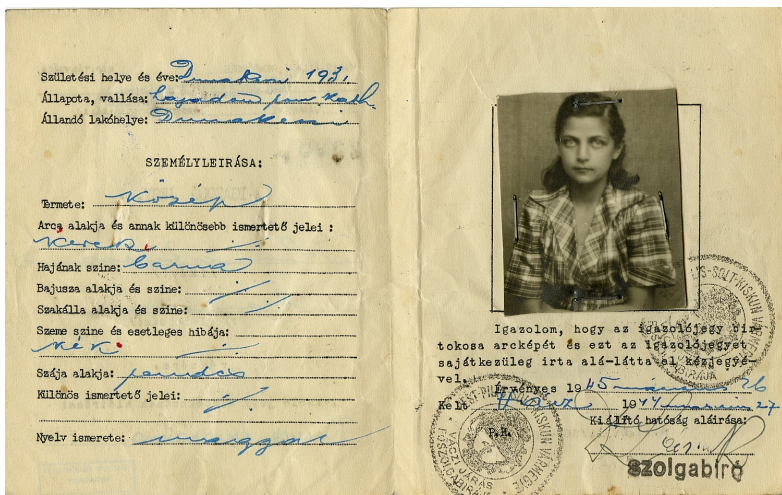 Születési helye és éve: Dunakeszi 1931.
Állapota, vallása: hajadon, rom. kath.
Állandó lakóhelye: Dunakeszi
SZEMÉLYLEIRÁSA:
Termete: közép
Arca alakja és annak különösebb ismertető jelei :
kerek,
Hajának szine: barna
Bajusza alakja és szine:
Szakálla alakja és szine:
Szeme szine és esetleges hibája:
kék
Szája alakja: rendes
Különös ismertető jelei:
Nyelv ismerete: magyar
Igazolom, hogy az igazolójegy bir-
tokosa arcképét és ezt az igazolójegyet
sajátkezüleg irta alá-látta el kézjegyé-
vel.
Érvényes 1945 26
Kelt 1944 27
Kiállitó hatóság aláirása:
P.H.
szolgabiró
PEST-PILIS-SOLT-KISKUN VÁRMEGYE
VÁCZI JÁRÁS
FŐSZOLGABIRÁJA